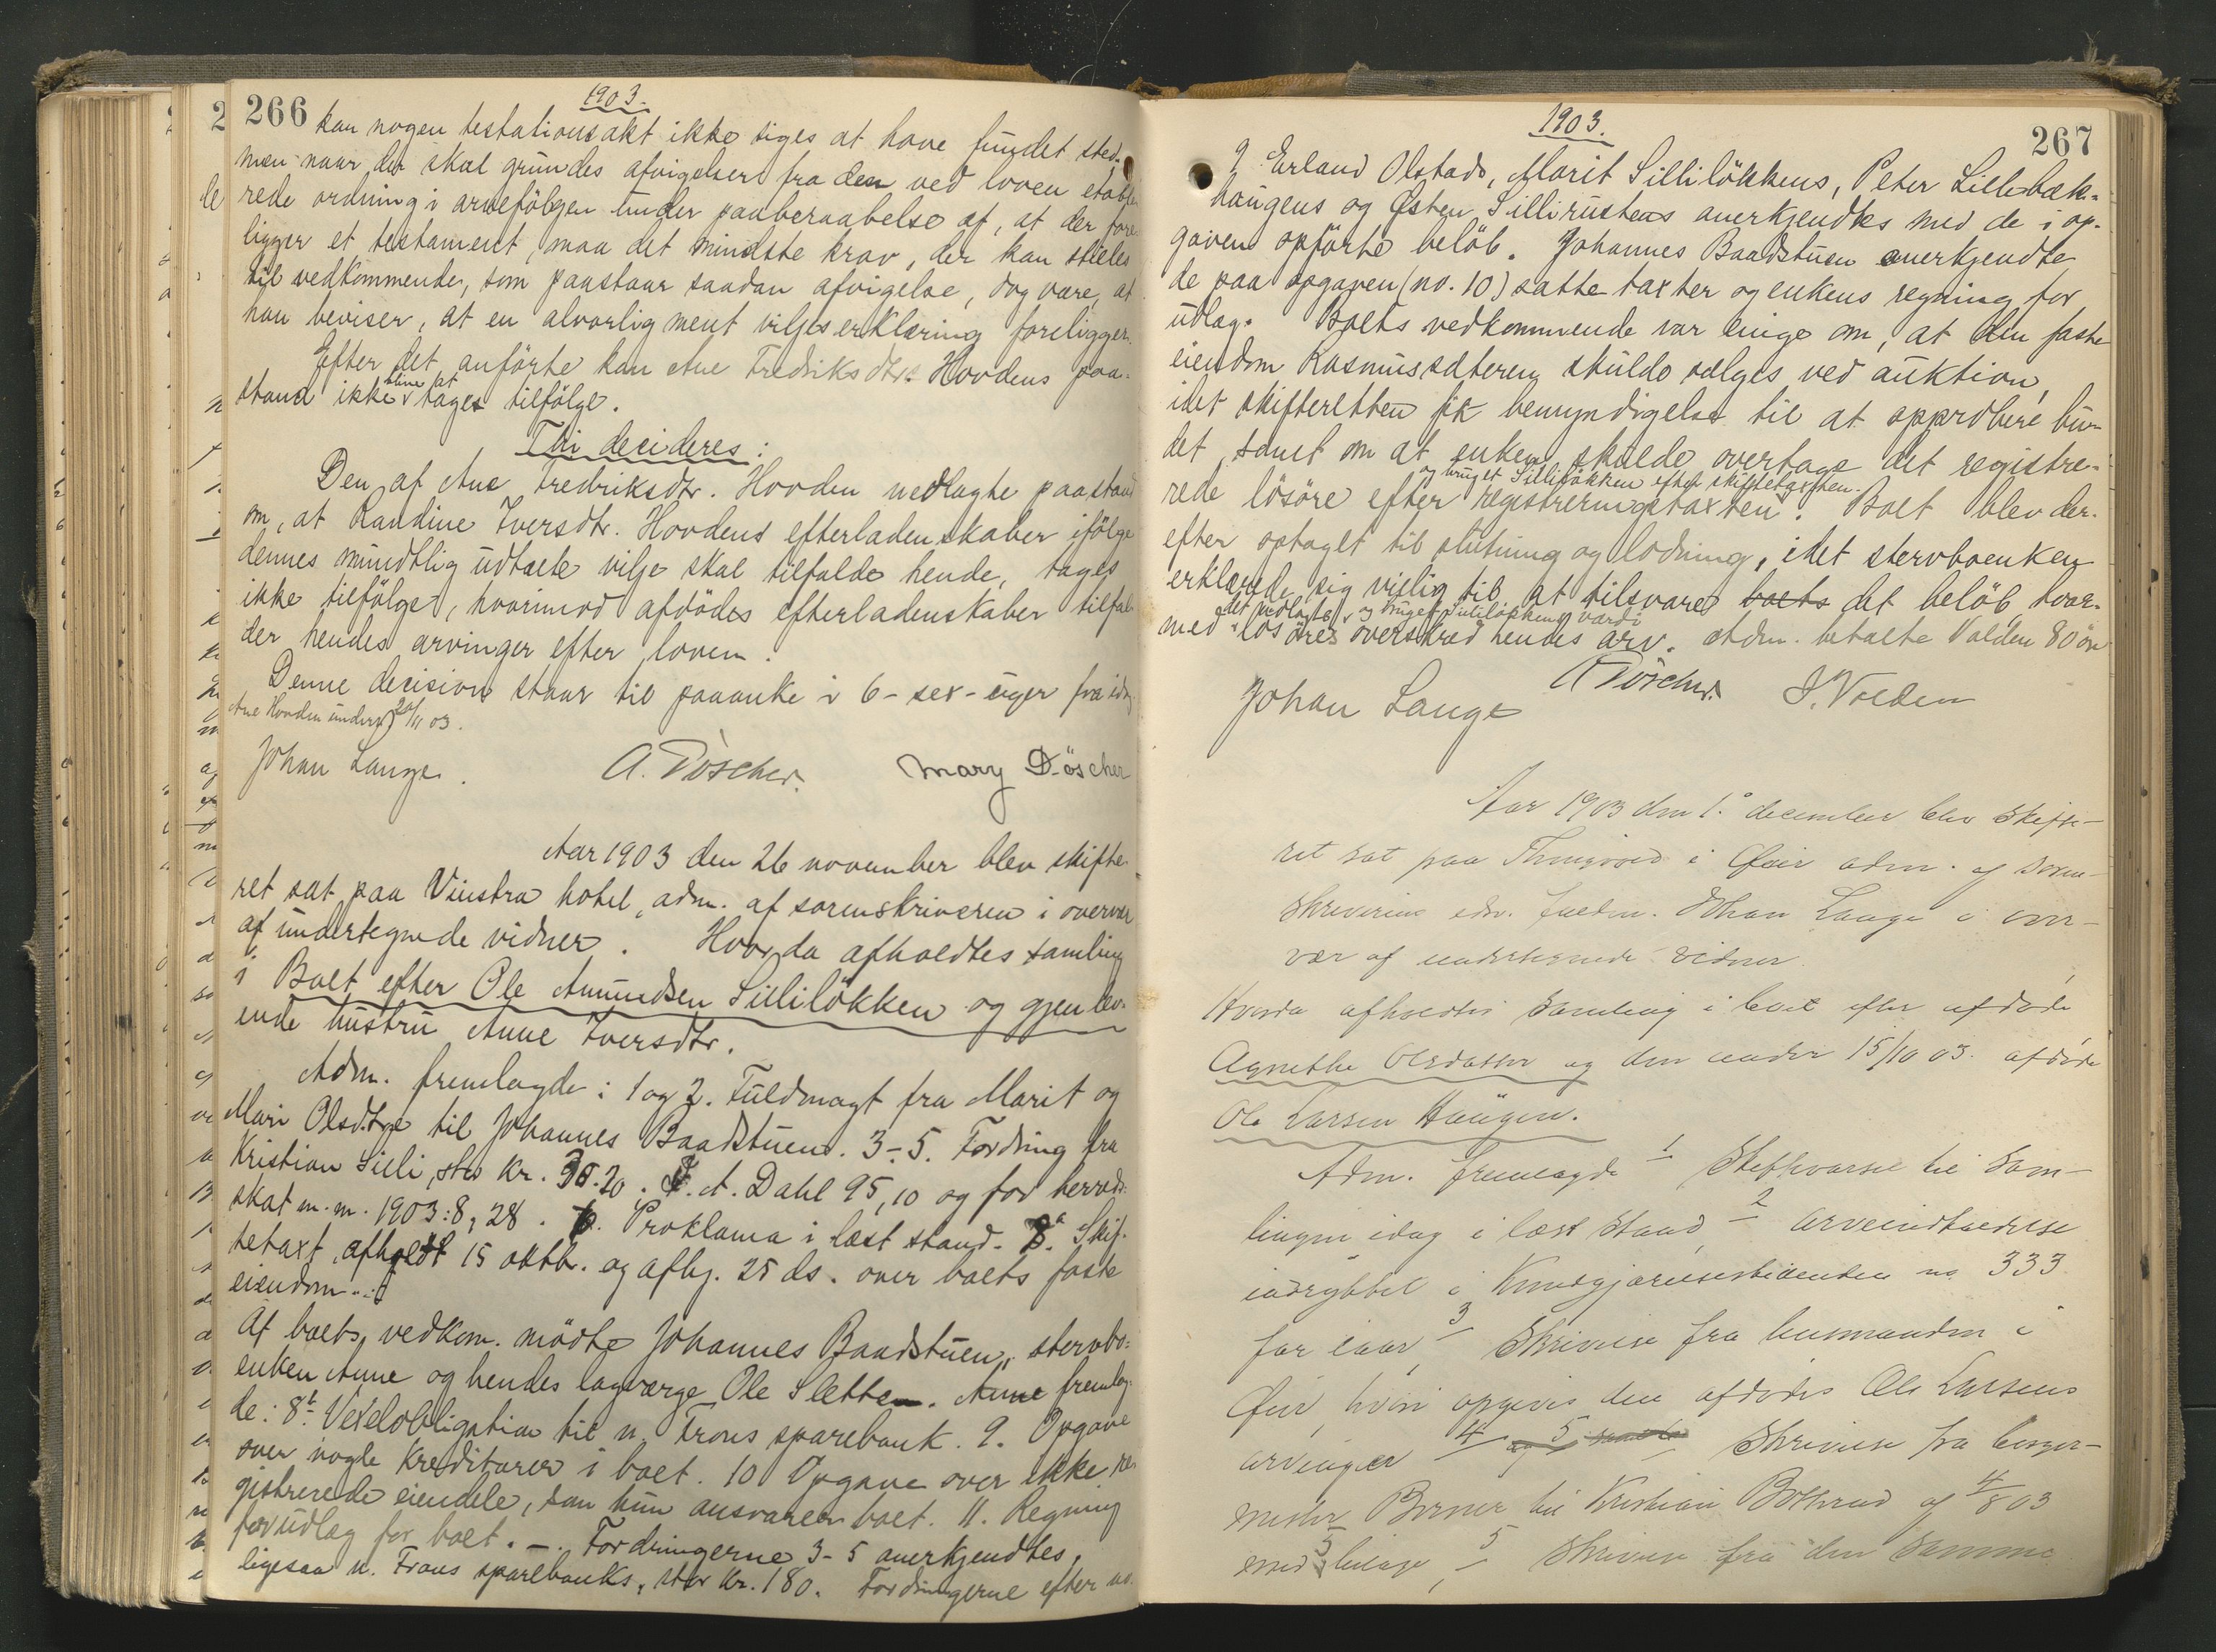 266
1903.
kan nogen testationsakt ikke siges at have fundet sted.
men naar der skal grundes afvigelser fra den ved loven etable-
rede ordning i arvefölgen under paaberaabelse af, at der fore-
ligger et testament, maa det mindste krav, der kan stilles
til vedkommende, som paastaar saadan afvigelse, dog være, at
han beviser, at en alvorlig ment viljeserklæring foreligger.
Efter det anförte kan Ane Fredriksdtr. Hovdens paa-
stand ikke blive at tages tilfölge.
Thi decideres:
Den af Ane Fredriksdtr. Hovden nedlagte paastand
om, at Randine Iversdtr. Hovdens efterladenskaber ifölge
dennes mundtlig udtalte vilje skal tilfalde hende, tages
ikke tilfölge, hvorimod afdödes efterladenskaber tilfal-
der hendes arvinger efter loven.
Denne decision staar til paaanke i 6 - sex - uger fra idag
Ane Hovden underr. 20/11 03.
Johan Lange. A. Döscher. Mary Döscher
Aar 1903 den 26 november blev skifte-
ret sat paa Vinstra hotel, adm. af sorenskriveren i overvær
af undertegnede vidner. Hvorda afholdtes samling
i Boet efter Ole Amundsen Silliløkken og gjenlev-
ende hustru Anne Iversdtr.
Adm. fremlagde: 1 og 2. Fuldmagt fra Marit og
Mari Olsdtre til Johannes Baadstuen. 3-5. Fordring fra
Kristian Silli, stor kr. 30.20. I. A. Dahl 95,10 og for herreds-
skat m. m. 1903: 8,28. 6. Proklama i læst stand. 8a. Skif-
tetaxt, afholdt 15 oktbr. og afhj. 25 ds. over boets faste
eiendom.
Af boets vedkom. mödte Johannes Baadstuen, stervbo-
enken Anne og hendes lagværge Ole Sletten. Anne fremlag-
de: 8b. Vexelobligation til n. Frons sparebank. 9. Opgave
over nogle kreditorer i boet. 10 Opgave over ikke re-
gistrerede eiendele, som hun ansvarer boet. 11. Regning
for udlæg for boet. —. Fordringerne 3-5 anerkjendtes,
ligesaa n. Frons sparebanks, stor kr. 180. Fordringerne efter no.
1903.
267
9 Erland Olstads, Marit Silliløkkens, Peter Lillebæk-
haugens og Østen Sillirustens anerkjendtes med de i op-
gaven opförte belöb. Johannes Baadstuen anerkjendte
de paa opgaven (no. 10) satte taxter og enkens regning for
udlæg. Boets vedkommende var enige om, at den faste
eiendom Rasmussæteren skulde sælges ved auktion,
idet skifteretten fik bemyndigelse til at approbere bu-
det, samt om at enken skulde overtage det registre-
og bruget Silliløkken efter skiftetaxten.
rede lösöre efter registreringstaxten. Boet blev der-
efter optaget til slutning og lodning, idet stervboenken
erklærede sig villig til at tilsvare boets det belöb hvor-
det udlagte og bruget Silliløkkens værdi
med lösöres overskred hendes arv. Adm. betalte Volden 80 öre
Johan Lange A. Döscher. I. Volden
Aar 1903 den 1. december blev skifte-
ret sat paa Thingvold i Öier adm. af soren-
skriverens edsv. fuldm. Johan Lange i over-
vær af undertegnede vidner.
Hvorda afholdtes samling i boet efter afdöde
Agnethe Olsdatter og den under 15/10 03 afdöde
Ole Larsen Haugen.
Adm. fremlagde 1 Skiftevarsel til sam-
lingen idag i læst stand, 2 arveindkaldelse
indrykket i Kundgjørelsestidenden no 333
for iaar, 3 Skrivelse fra lensmanden i
Öier, hvori opgives den afdödes Ole Larsens
arvinger 4 og 5 Skrivelse fra borger-
mester Börner til Kristian Bothrud af 4/8 03
med bilage, 5 Skrivelse fra den samme